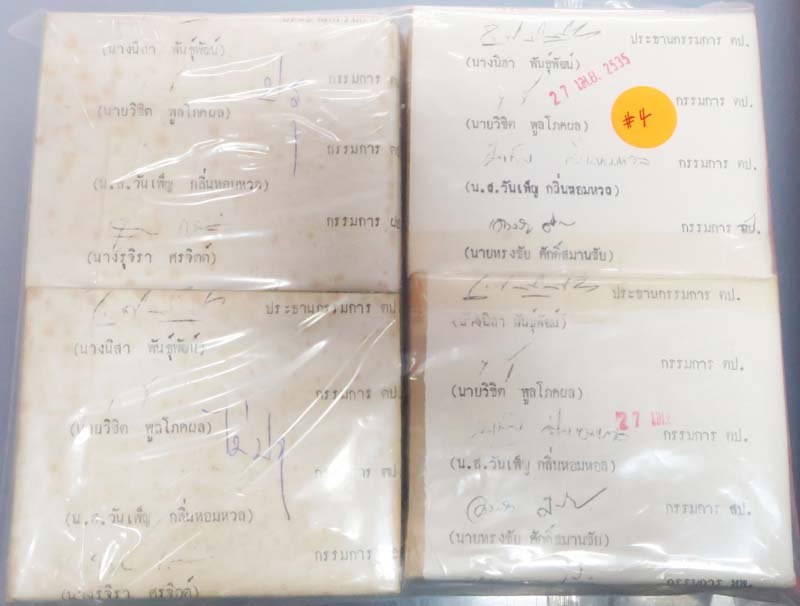 (นางนิสา พันธุ์พัฒน์)
กรรมการ
(นายวิชิต พูลโภคผล)
กรรมการ
(น.ส.วันเพ็ญ กลิ่นหอมหวล)
กรรมการ
(นางรุจิรา ศรจิตต์)
ประธานกรรมการ ตป.
(นางนิสา พันธุ์พัฒน์)
27 เม.ย. 2535
กรรมการ ตป.
#4
(นายวิชิต พูลโภคผล)
กรรมการ ตป.
(น.ส.วันเพ็ญ กลิ่นหอมหวล)
กรรมการ สป.
(นายทรงชัย ศักดิ์สมานชัย)
ประธานกรรมการ ตป.
(นางนิสา พันธุ์พัฒน์)
กรรมการ ตป.
(นายวิชิต พูลโภคผล)
ไม่ปรุ
กรรมการ
(น.ส.วันเพ็ญ กลิ่นหอมหวล)
กรรมการ
(นางรุจิรา ศรจิตต์)
ประธานกรรมการ ตป.
(นางนิสา พันธุ์พัฒน์)
กรรมการ ตป.
(นายวิชิต พูลโภคผล)
27 เม.ย.
กรรมการ ตป.
(น.ส.วันเพ็ญ กลิ่นหอมหวล)
กรรมการ สป.
(นายทรงชัย ศักดิ์สมานชัย)